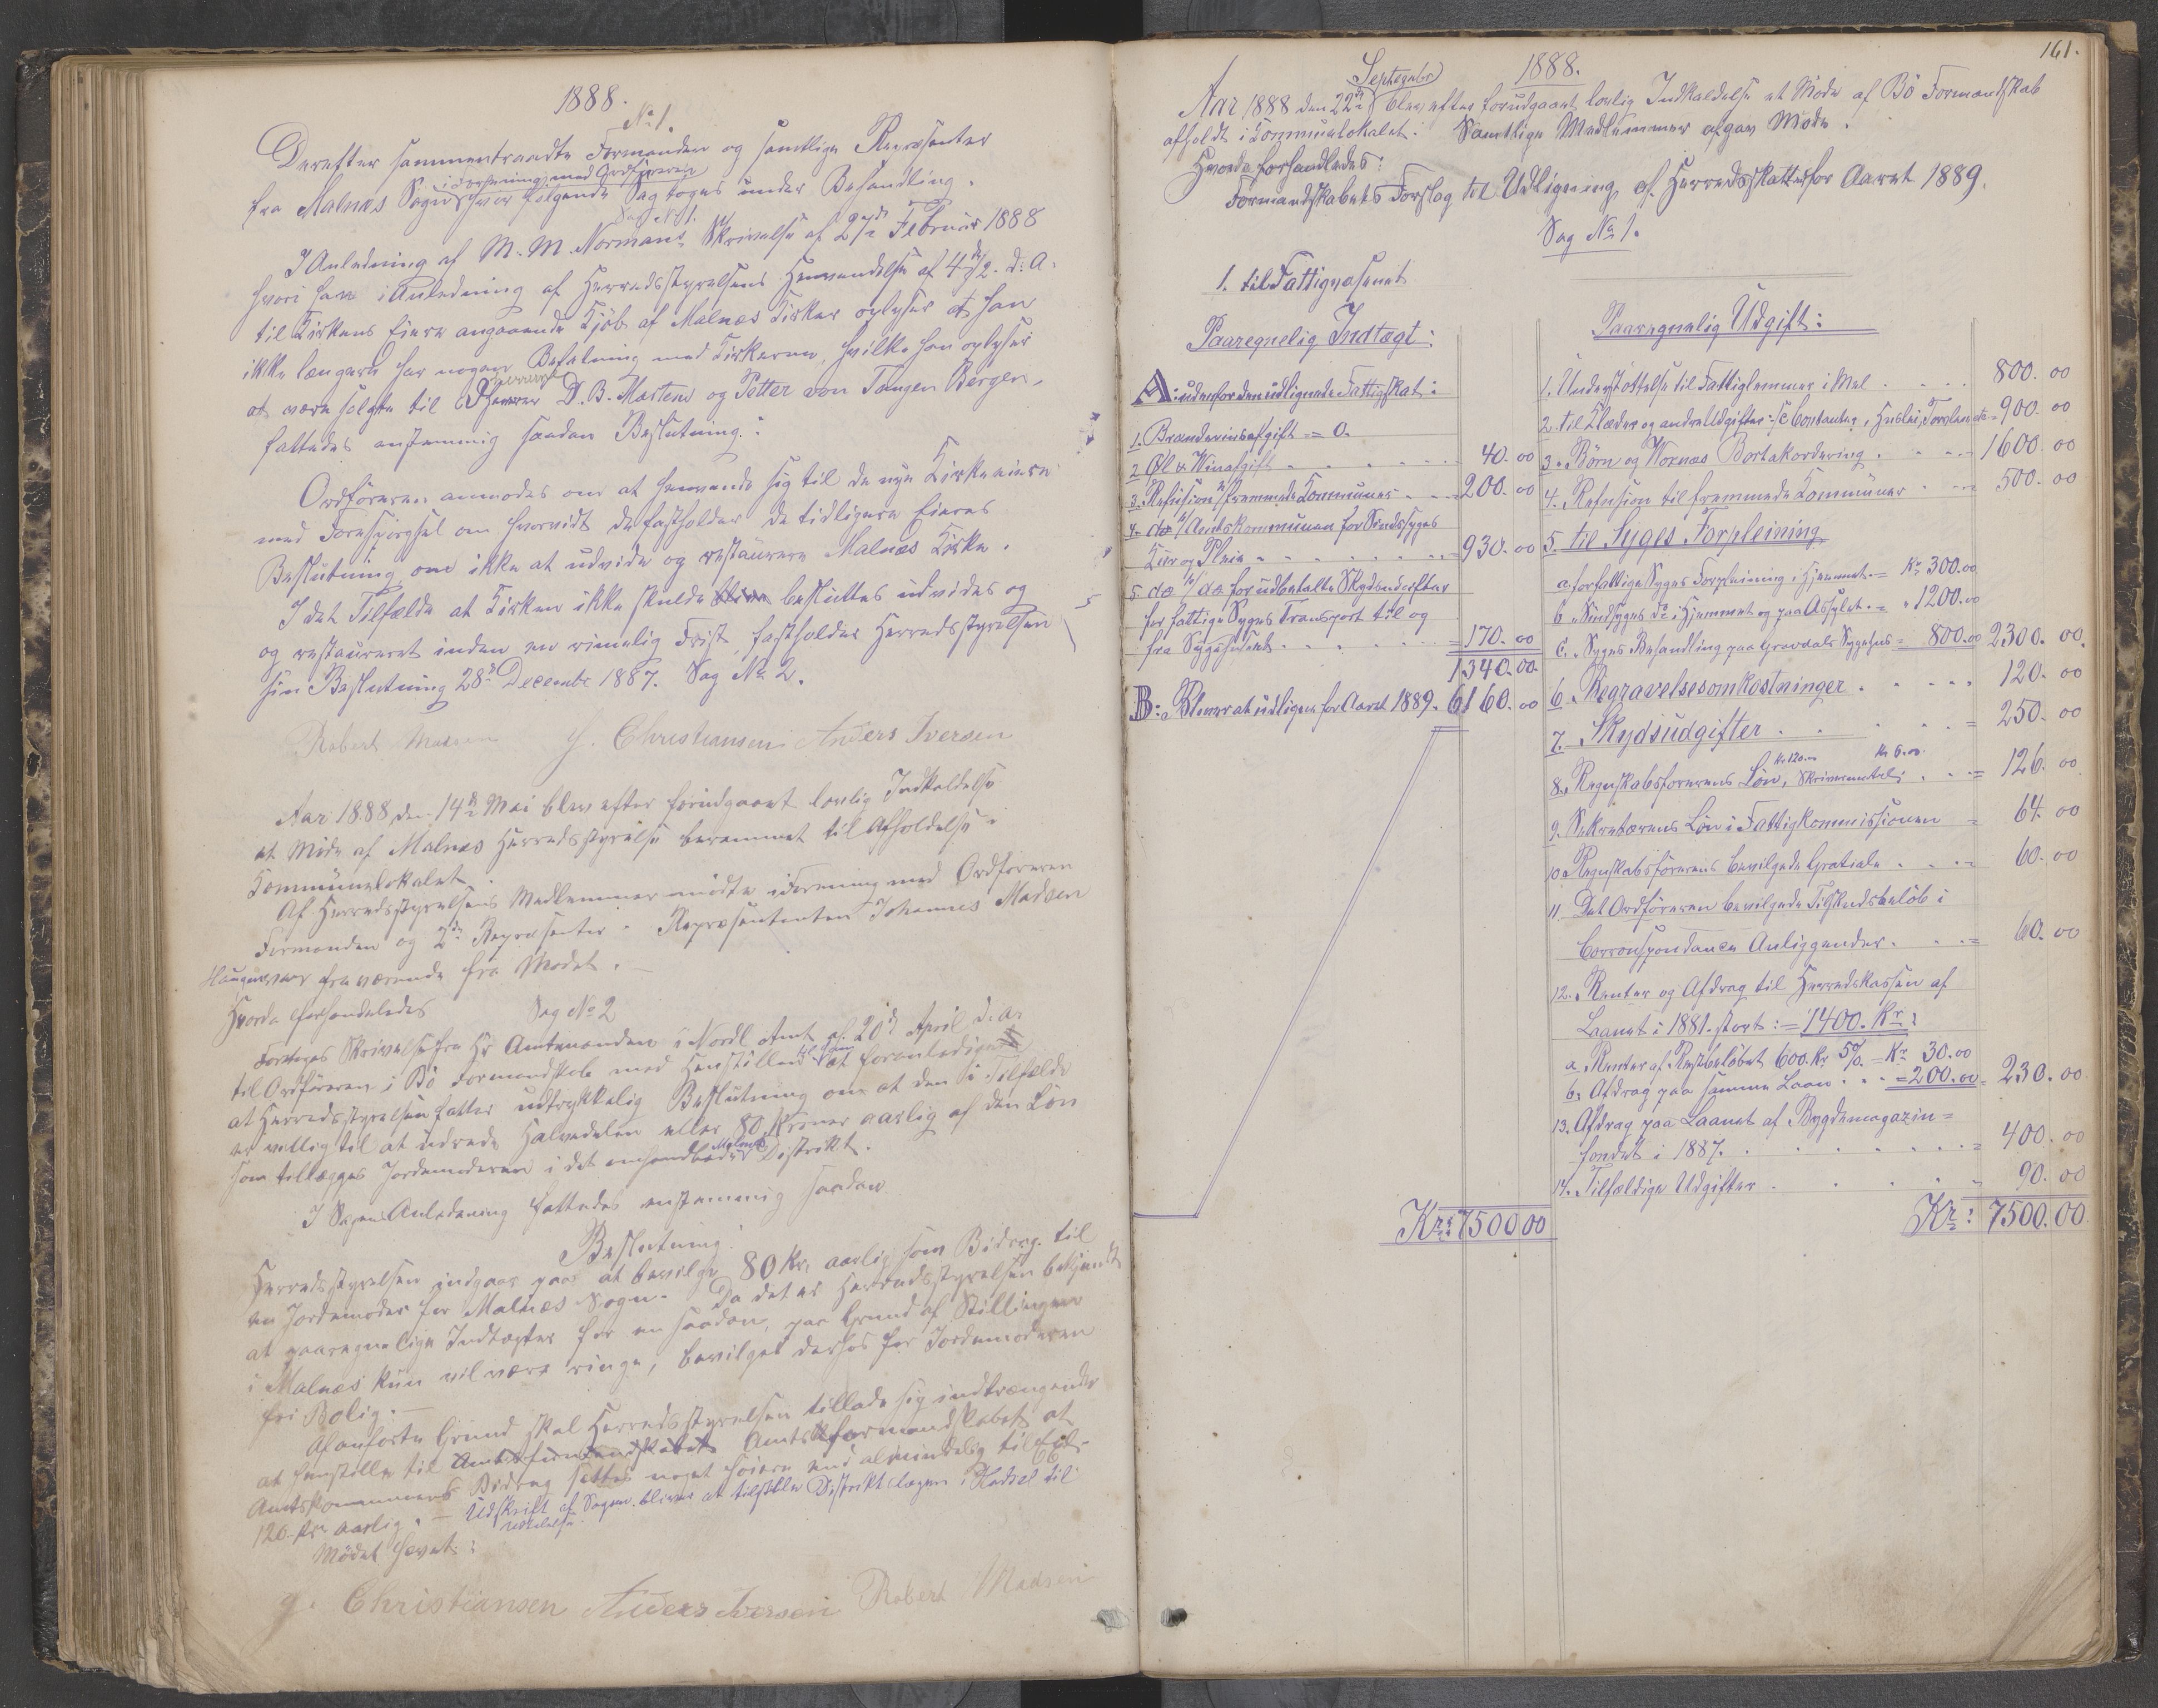 1888.
No 1.
Derefter sammentraadte Formanden og samtlige Repræsenter
fra Malnes Sogn i Forening med Ordføreren hvor følgende Sag toges under Behandling.
Sag No 1.
I Anledning af M. M. Normans Skrivelse af 27de Februar 1888
hvori han i Anledning af Herredsstyrelsens Henvendelse af 4de/2. d. A.
til Kirkens Eiere angaaende Kjøb af Malnes Kirker oplyser at han
ikke længere har nogen Befatning med Kirkerne, hvilke han oplyser
at være solgte til Herrer D. B. Mæsten og Petter von Tangen Bergen,
fattedes enstemmig saadan Beslutning:
Ordføreren anmodes om at henvende sig til de nye Kirkeeiere
med Forespørgsel om hvorvidt de fastholder de tidligere Eieres
Beslutning om ikke at udvide og restaurere Malnes Kirke.
I det Tilfælde at Kirken ikke skulde blive besluttes udvides og
og restaureret inden en rimelig Frist, fastholder Herredsstyrelsen
sin Beslutning 28de December 1887. Sag No 2.
Robert Madsen J. Christiansen Anders Iversen
Aar 1888 den 14de Mai blev efter forudgaaet lovlig Indkaldelse
et Møde af Malnes Herredsstyrelse berammet til Afholdelse i
Kommunelokalet.
Af Herredsstyrelsens Medlemmer mødte i Forening med Ordføreren
Formanden og 2de Repræsenter. Repræsentanten Johannes Madsen
Haugnes var fraværende fra Mødet.
Hvorda forhandledes
Sag No 2
Foretoges Skrivelse fra Hr Amtmanden i Nordl Amt af 20de April d. a.
til Ordføreren i Bø Formandskab med Henstillen at foranledige
at Herredsstyrelsen fatter udtrykkelig Beslutning om at den i Tilfælde
er villig til at udrede Halvedelen eller 80 Kroner aarlig af den Løn
som tillægges Jordemoderen i det omhandlede Malnes Distrikt.
I Sagens Anledning fattedes enstemmig saadan
Beslutning.
Herredsstyrelsen indgaar paa at bevilge 80 Kr. aarlig som Bidrag til
en Jordemoder for Malnes Sogn. Da det er Herredsstyrelsen bekjendt
at paaregnelige Indtægter for en saadan, paa Grund af Stillingen
i Malnes kun vil være ringe, bevilges derhos for Jordemoderen
fri Bolig.
Af anførte Grund skal Herredsstyrelsen tillade sig indtrængende
at henstille til Amtsformandskabet Amtsformandskabet at
Amtskommunens Bidrag sættes noget høiere end almindelig til
120 Kr aarlig. — Udskrift af Sagen bliver at tilstille Distriktslægen i Hadsel til
Udtalelse.
Mødet hævet:
J. Christiansen Anders Iversen Robert Madsen
161.
1888.
Aar 1888 den 22de September blev efter forudgaaet lovlig Indkaldelse et Møde af Bø Formandskab
afholdt i Kommunelokalet. Samtlige Medlemmer afgav Møde.
Hvorda forhandledes:
Formandskabets Forslag til Udligning af Herredsskatter for Aaret 1889.
Sag No 1.
1. til Fattigvæsenet
Paaregnelig Indtægt:
A: udenfor den udlignede Fattigskat:
1. Brændevinsafgift = 0.
2 Øl & Vinafgift . . . . 40. 00
3. Refusion fra fremmede Kommuner . . = 200. 00
4. do fra Amtskommunen for Sindssyges
Kur og Pleie . . . . = 930. 00
5 do fra do for udbetalte Skydsudgifter
for fattige Syges Transport til og
fra Sygehuset . . . . = 170. 00
1340. 00
B: Bliver at udligne for Aaret 1889. 6160. 00
Kr: 7500 00
Paaregnelig Udgift:
1. Understøttelse til Fattiglemmer i Mel . . . . 800. 00
2. til Klæder og andre Udgifter: Se Contanter, Husleie, Torvløn etc = 900. 00
3. Børn og Voxnes Bortakordering . . . . = 1600. 00
4. Refusion til fremmede Kommuner . . = 500. 00
5. til Syges Forpleining
a. for fattige Syges Forpleining i Hjemmet = Kr 300.00
b. Sindssyges do i Hjemmet og paa Asylet = " 1200.00
c. Syges Behandling paa Gravdals Sygehus = 800.00 2300. 00.
6. Begravelsesomkostninger . . . . . 120. 00
7. Skydsudgifter . . . . = 250. 00
8. Regnskabsførerens Løn, Kr 120.00 Skrivemateli Kr 6.00 . . = 126. 00
9. Sekretærens Løn i Fattigkommissionen = 64. 00
10. Regnskabsførerens bevilgede Gratiale . . . = 60. 00
11 Det Ordføreren bevilgede Tilskudsbeløb i
Corronspondance Anliggender . . . = 60. 00
12. Renter og Afdrag til Herredskassen af
Laanet i 1881. stort: = 1400. Kr:
a. Renter af Restbeløbet 600. Kr 5% = Kr 30.00
b. Afdrag paa samme Laan . . . = 200.00 = 230. 00
13. Afdrag paa Laanet af Bygdemagazin=
fondet i 1887. . . . . . = 400. 00
14. Tilfældige Udgifter . . . . 90. 00
Kr: 7500. 00